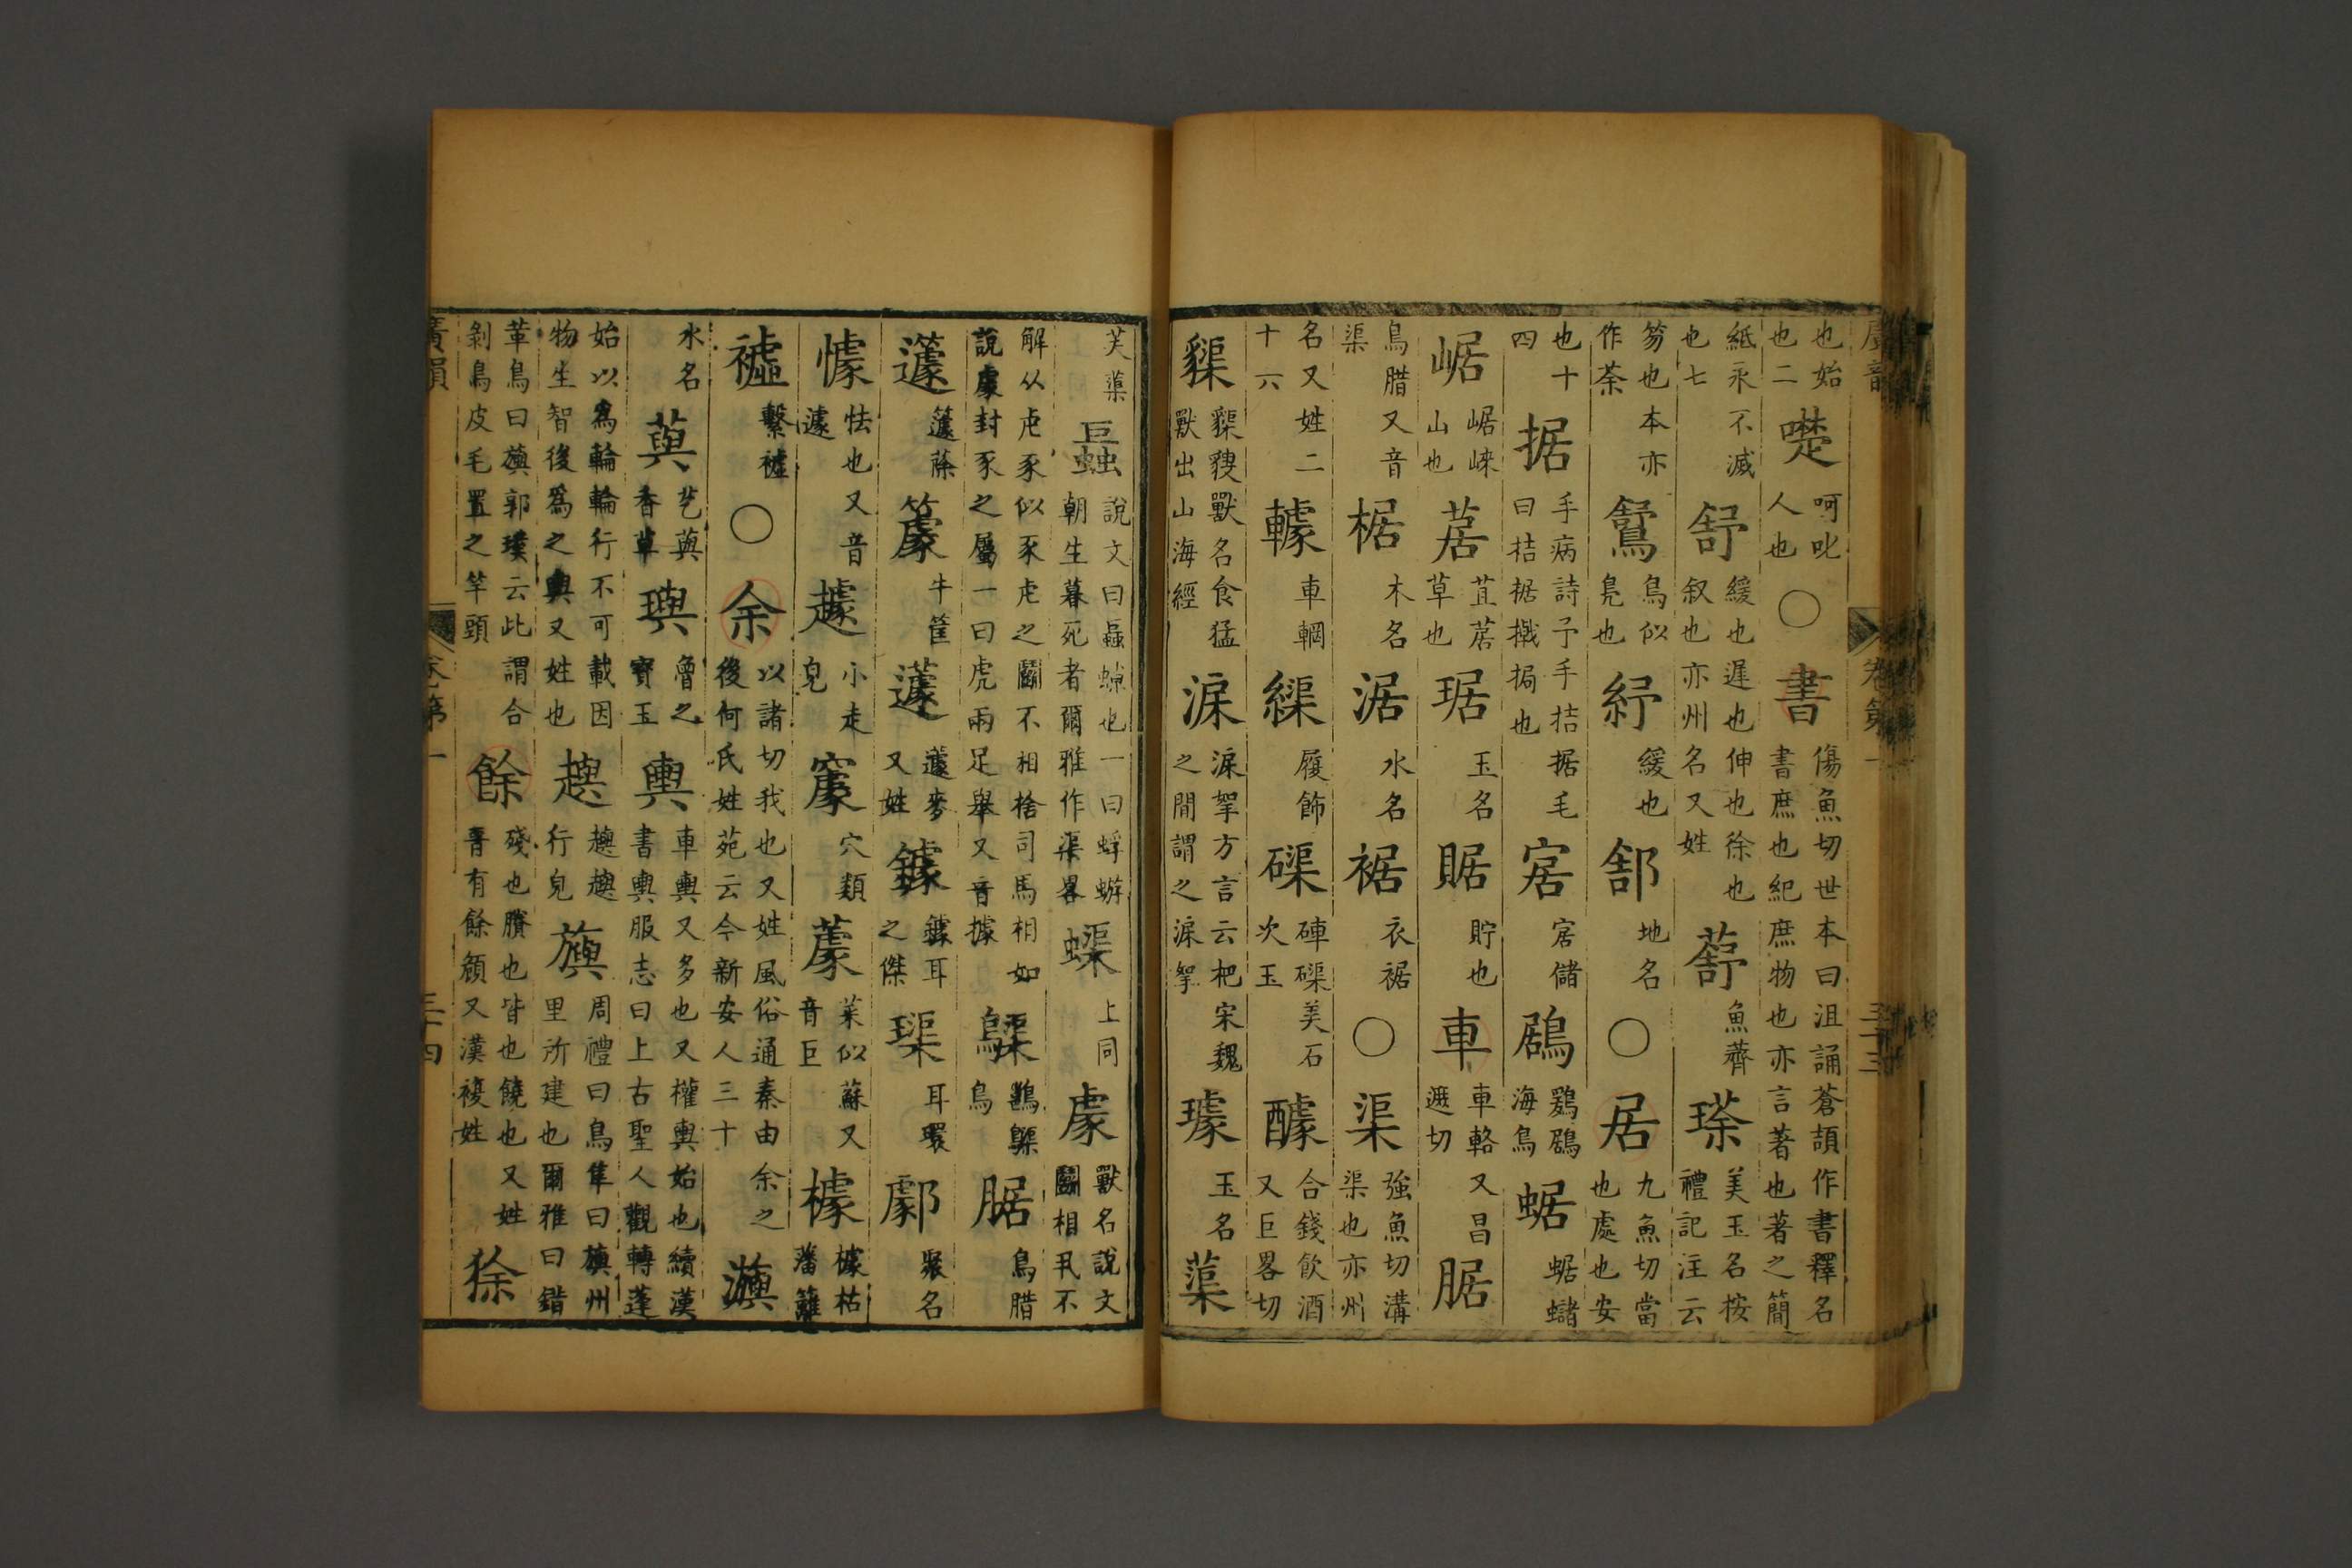 也始也二
呵叱人也○書傷魚切世本曰沮誦蒼頡作書釋名書庶也紀庶物也亦言著也著之簡
紙永不滅也七舒緩也遲也伸也徐也叙也亦州名又姓魚薺瑹美玉名按禮記注云
笏也本亦作荼鵨鳥似鳧也紓緩也地名○居九魚切當也處也安
也十四据手病詩予手拮据毛曰拮据撠挶也㝒㝒儲鶋鶢鶋海鳥蜛蜛蠩
崌崌崍山也草也琚玉名䝻貯也車車輅又昌遮切腒
鳥腊又音渠椐木名涺水名裾衣裾○渠強魚切溝渠也亦州
名又姓二十六車輞履飾磲硨磲美石次玉醵合錢飲酒又巨畧切
獸名食猛獸出山海經淭淭挐方言云杷宋魏之間謂之淭挐璩玉名蕖
芙蕖說文曰一曰蜉蝣朝生暮死者爾雅作渠畧蟝上同豦獸名說文鬭相丮不
解从虍豕似豕虍之鬭不相捨司馬相如說豦封豕之屬一曰虎兩足舉又音據腒鳥腊
籧籧篨牛筐蘧蘧麥又姓鐻鐻耳之傑璖耳環聚名
懅怯也又音遽小走皃穴類藘菜似蘇又音巨㯫㯫枯藩籬
○余以諸切我也又姓風俗通秦由余之後何氏姓苑云今新安人三十
水名藇香草璵魯之寶玉輿車輿又多也又權輿始也續漢書輿服志曰上古聖人觀轉蓬
始以為輪輪行不可載因物生智後為之輿又姓也行皃旟周禮曰鳥隼曰旟州里所建也爾雅曰錯
革鳥曰旟郭璞云此謂合剝鳥皮毛置之竿頭餘殘也賸也皆也饒也又姓晉有餘頠又漢複姓
廣韻 卷第一 三十四